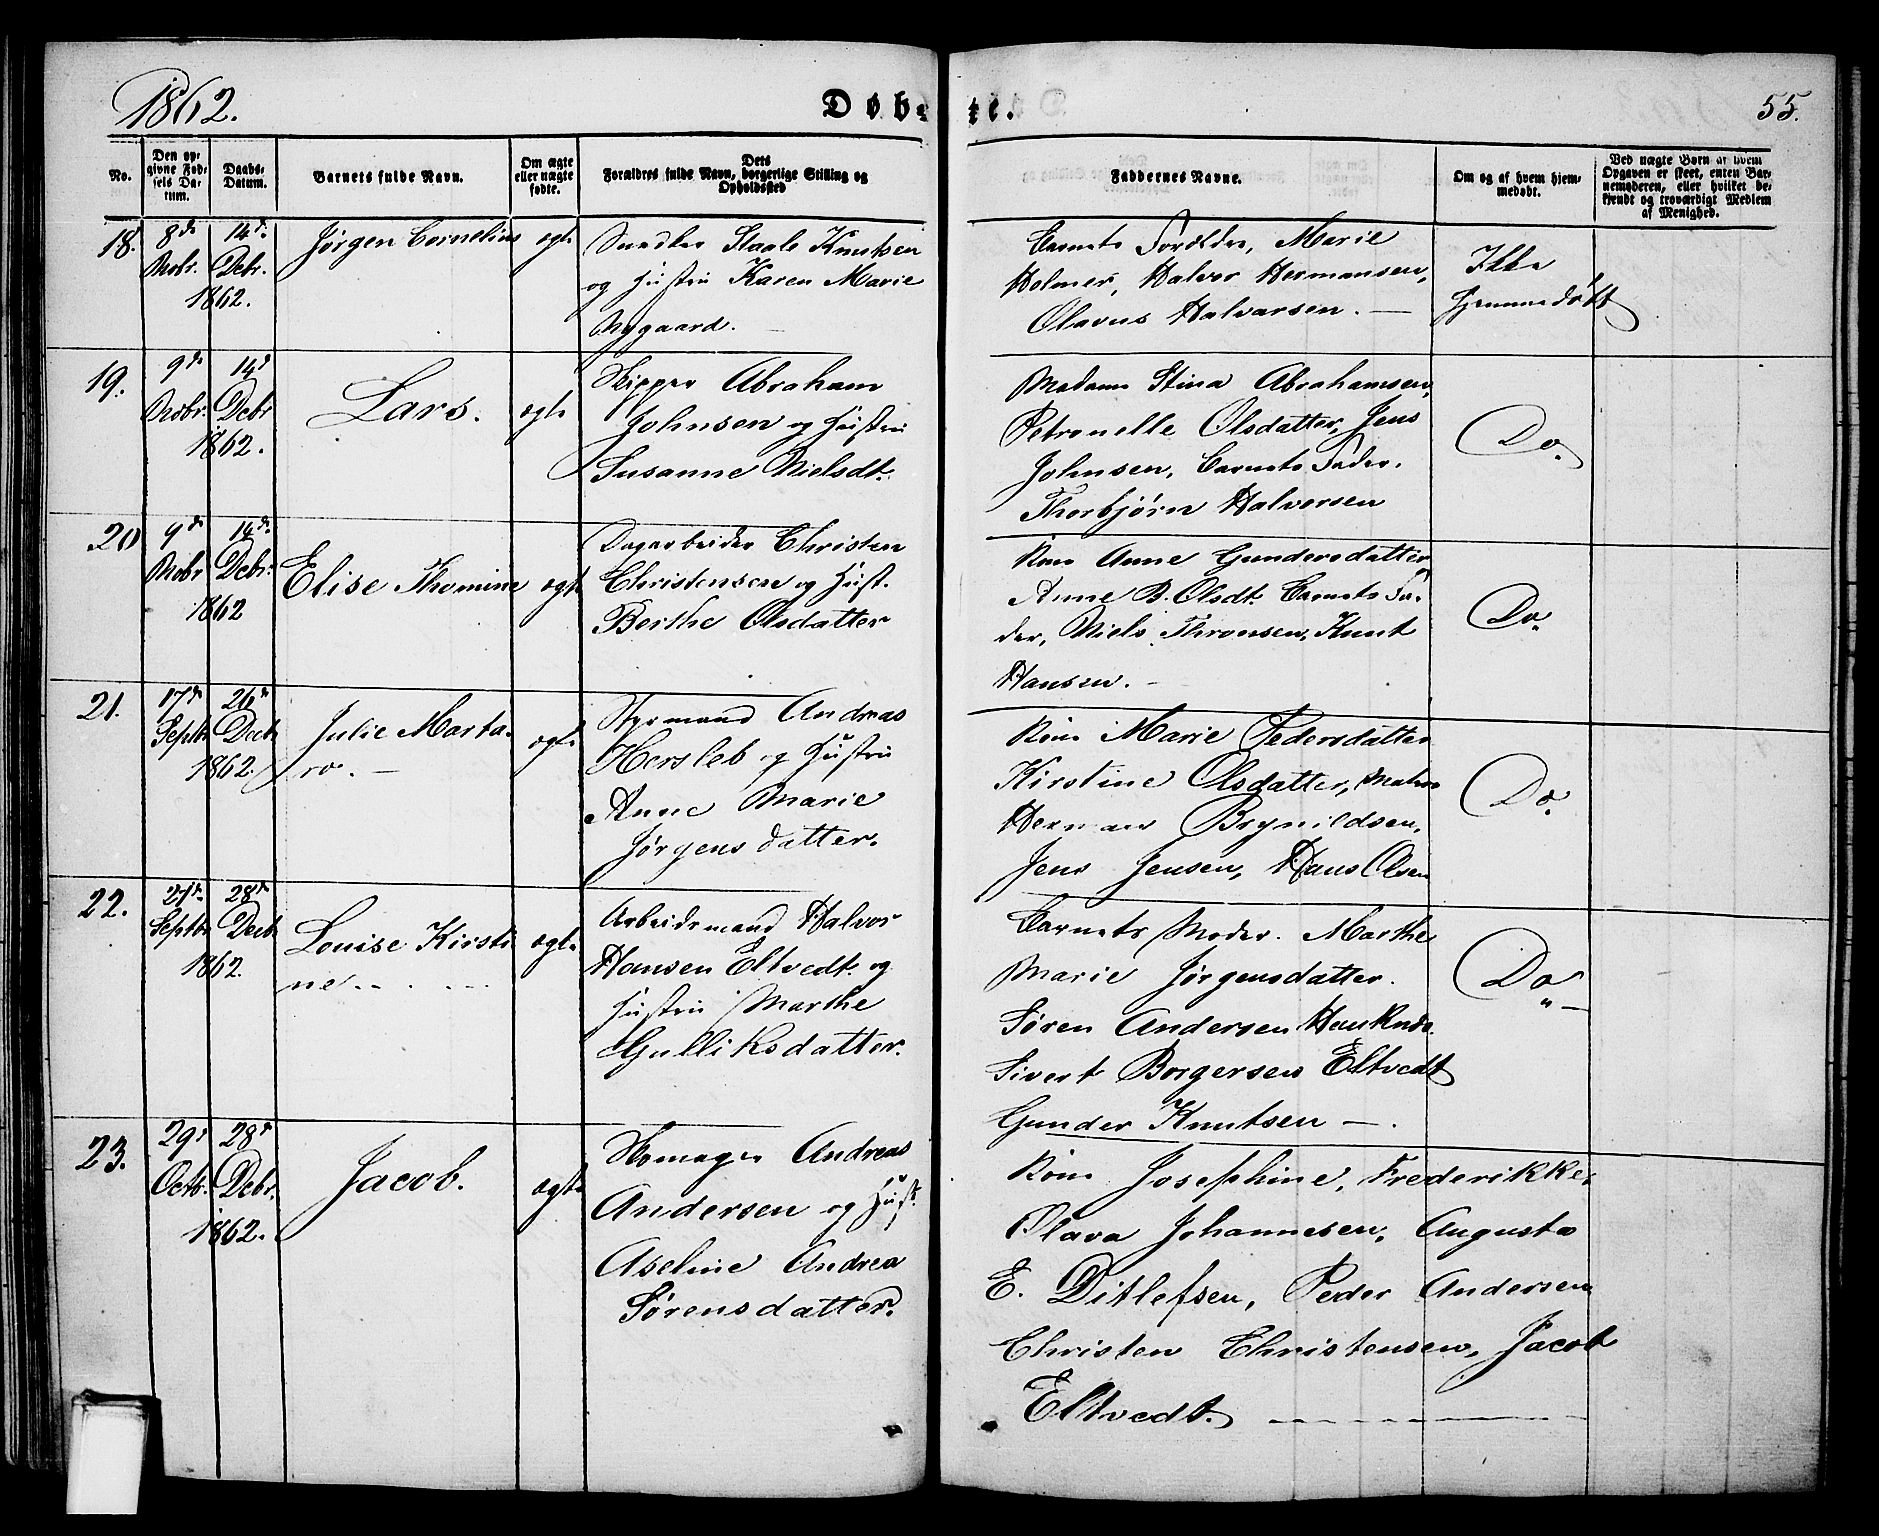 1862.
Døbte.
55.
No.
Den opgivne Fødsels Datum.
Daabs-Datum.
Barnets fulde Navn.
Om ægte eller uægte fødte.
Dets Forældres fulde Navn, borgerlige Stilling og Opholdssted
Faddernes Navne.
Om og af hvem hjemmedøbt.
Ved uægte Børn af hvem Opgaven er skeet, enten Barnemoderen, eller hvilket bekjendt og troværdigt Medlem af Menighed.
18. 8de Nobr. 14de Debr. 1862.
Jørgen Cornelius
ægte
Staale Knutsen
og Hustru Karen Marie
Nygaard. —
Barnets Forældre, Marie
Holmer, Halvor Hermansen,
Olavus Halvorsen. —
Ikke
hjemmedøbt
19. 9de Nobr. 14d Debr 1862.
Lars.
ægte
Skipper Abraham
Johnsen og Hustru
Susanne Nielsdt.
Madame Stina Abrahamsen,
Petronelle Olsdatter, Jens
Johnsen, Barnets Fader.
Thorbjørn Halvorsen
Do.
20 9de Nobr 14de Debr. 1862
Elise Thomine
ægte
Dagarbeider Christen
Christensen og Hust.
Berthe Olsdatter
Kone Anne Gundersdatter
Anne B. Olsdt. Barnets Fa-
der, Niels Thronsen, Knut
Hansen. —
Do.
21. 17de Septbr. 26de Decbr. 1862.
Julie Marta-
ro. —
ægte
Styrmand Andreas
Hersleb og Hustru
Anne Marie
Jørgensdatter.
Kone Marie Pedersdatter
Kirstine Olsdatter,
Herman Brynildsen,
Jens Jensen, Hans Olsen
Do.
22. 27de Septbr. 28de Decbr. 1862.
Louise Kirsti
ne
ægte
Arbeidsmand Halvor
Hansen Eltvedt og
Hustru Marthe
Gulliksdatter.
Barnets Moder. Marthe
Marie Jørgensdatter.
Søren Andersen
Sivert Borgersen Eltvedt
Gunder Knutsen —.
Do
23. 29de Octbr. 28de Debr. 1862.
Jacob.
ægte
Andreas
Andersen og Hust.
Aseline Andrea
Sørensdatter.
Kone Josephine, Frederikke,
Olava Johannesen, Augusta
E. Ditlefsen, Peder Andersen
Christen Christensen, Jacob
Eltvedt.